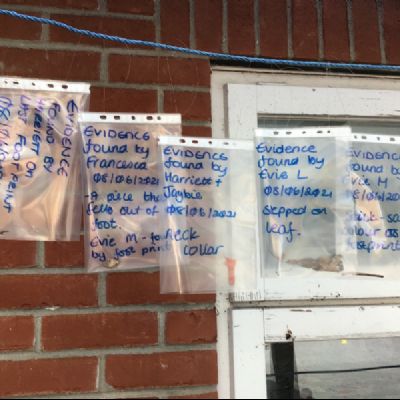 EVIDENCE
FOUND BY
HARRIET ON
LAST FOOTPRINT
08/06/2021
EVIDENCE
found by
Francesca
08/06/2021
- A piece tha
fell out of
foot.
Evie M - fo
by foot print
EVIDENCE
found by
Harriet +
Jaybie
08/06/2021
neck
collar
Evidence
found by
Evie L
08/06/2021
stepped on
leaf.
EVIDENC
found by
Evie M
08/06/202
colour as
footprint